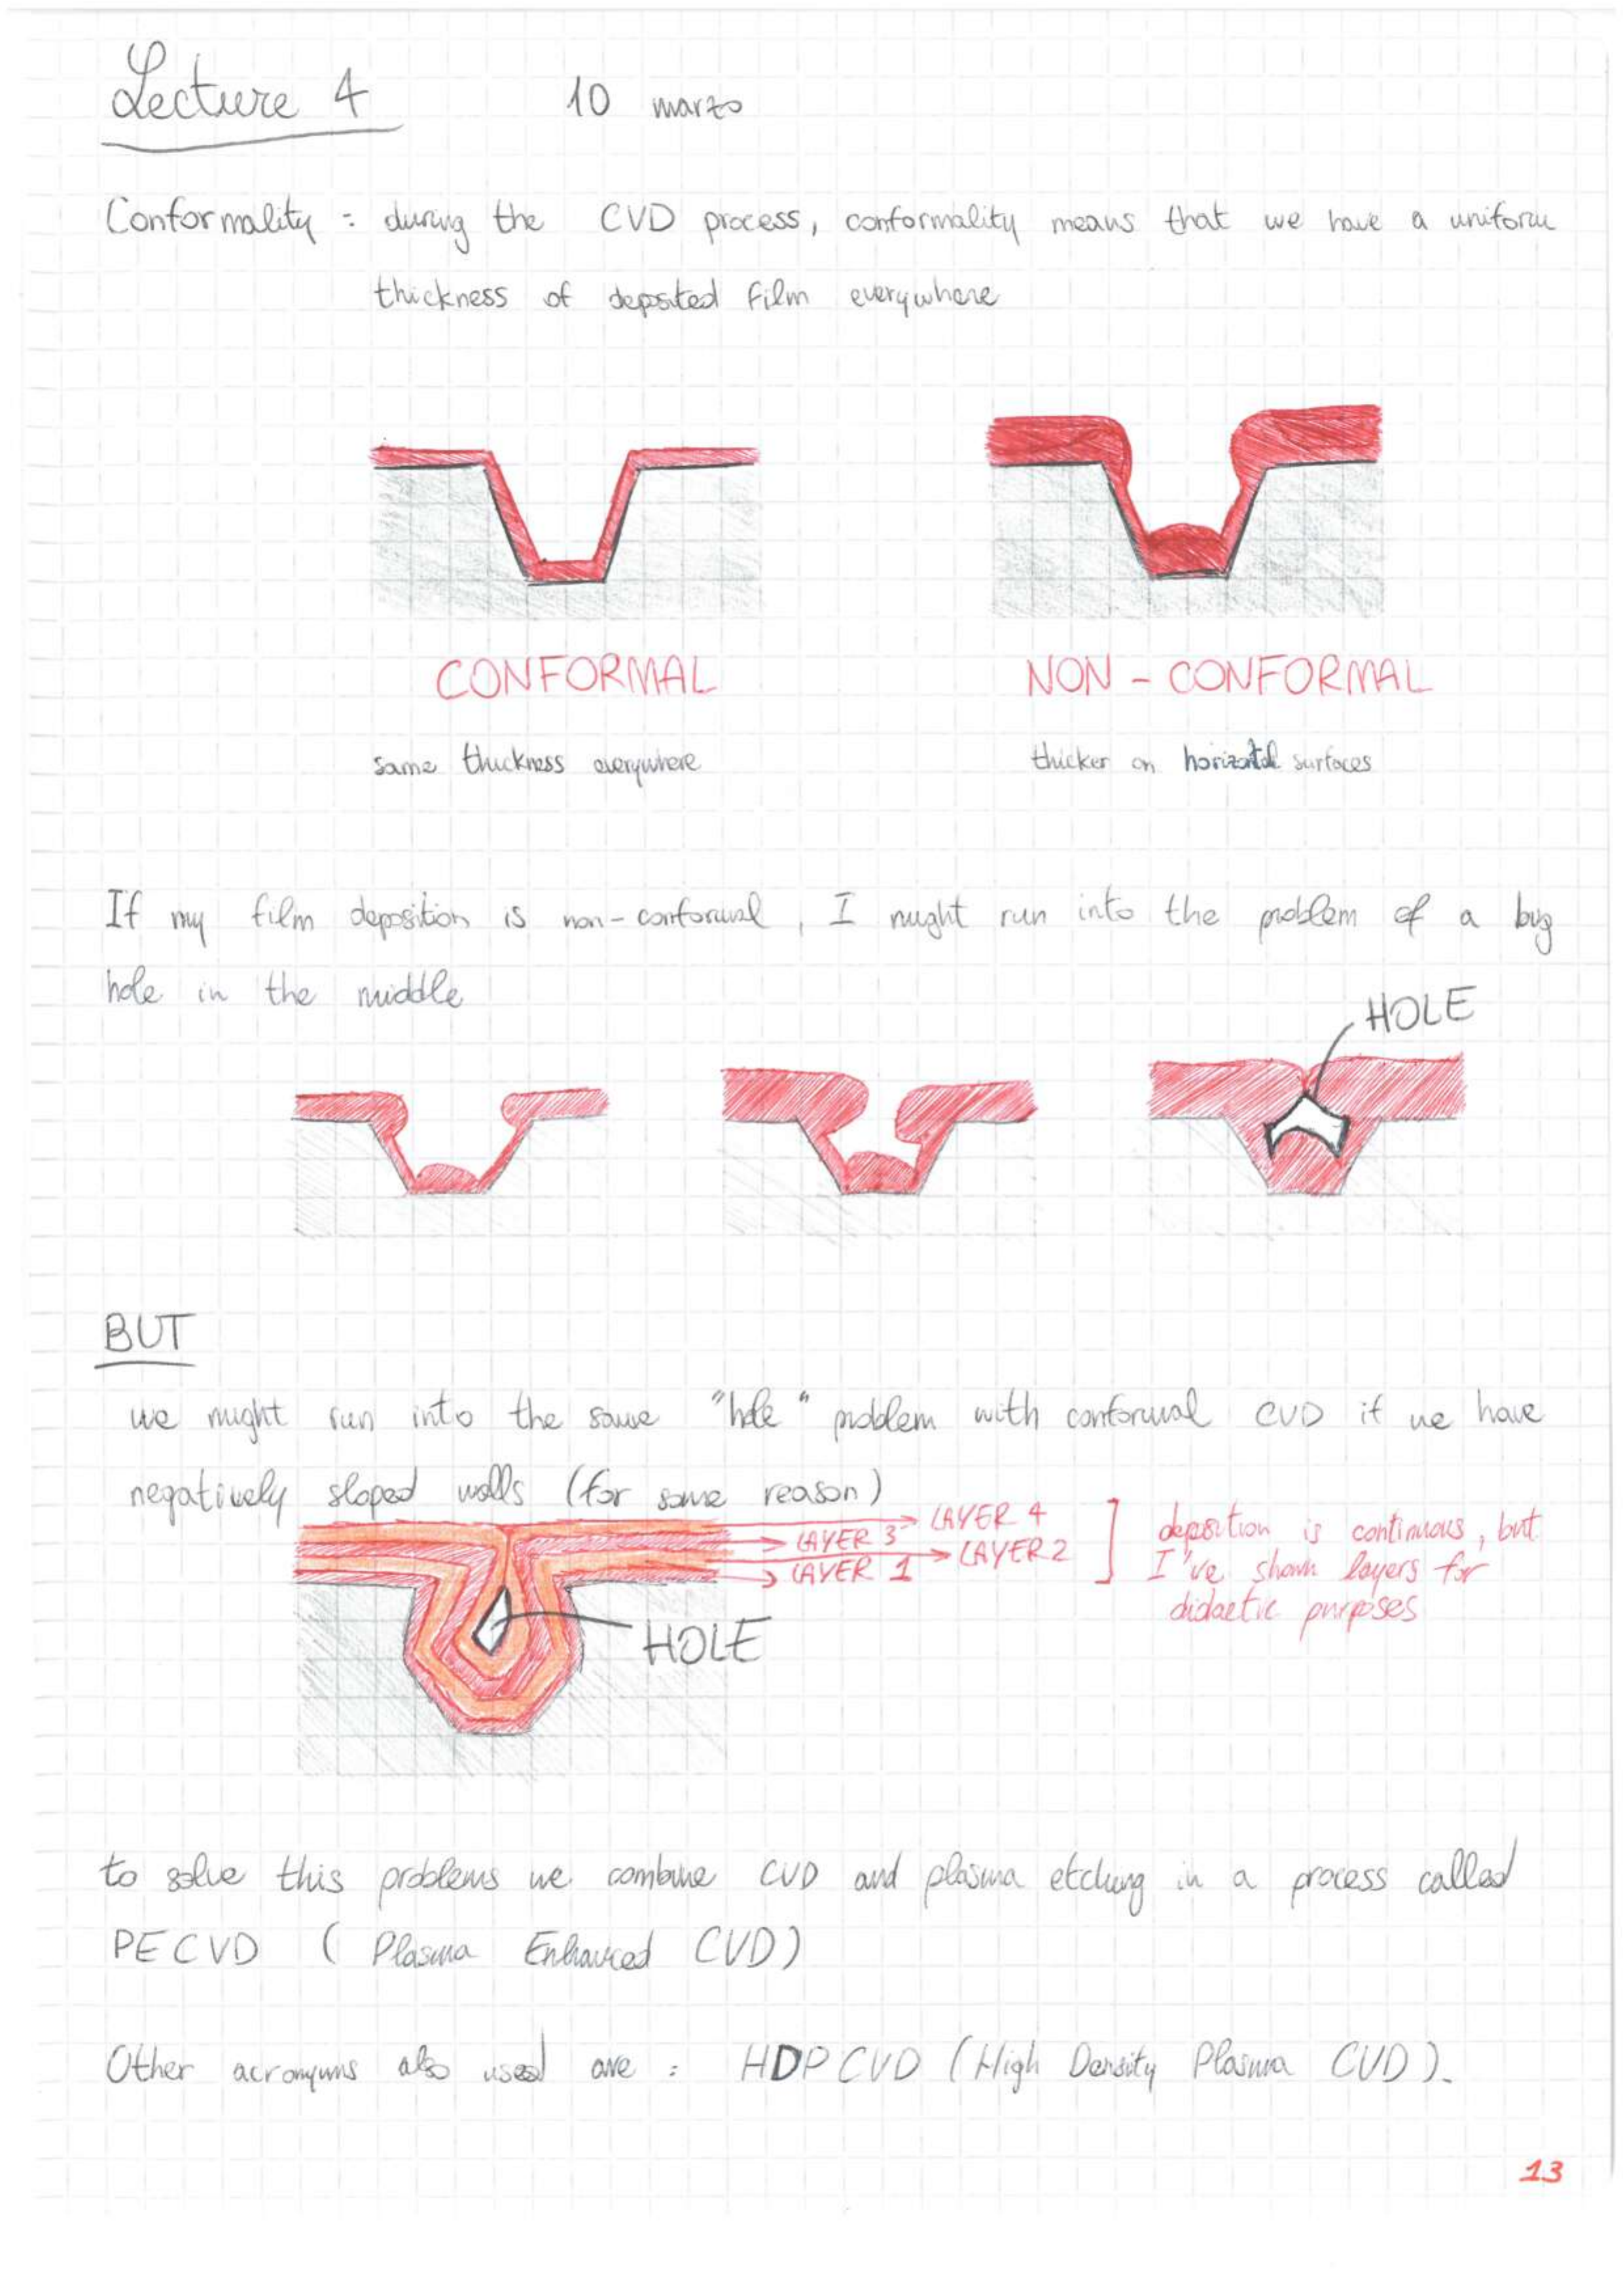 Lecture 4 10 marzo
Conformality : during the CVD process, conformality means that we have a uniform
thickness of deposited film everywhere
CONFORMAL NON - CONFORMAL
same thickness everywhere thicker on horizontal surfaces
If my film deposition is non-conformal, I might run into the problem of a big
hole in the middle
HOLE
BUT
we might run into the same "hole" problem with conformal CVD if we have
negatively sloped walls (for some reason)
LAYER 4
LAYER 3
LAYER 2
LAYER 1
deposition is continuous, but
I've shown layers for
didactic purposes
HOLE
to solve this problems we combine CVD and plasma etching in a process called
PECVD ( Plasma Enhanced CVD)
Other acronyms also used are : HDPCVD (High Density Plasma CVD).
13